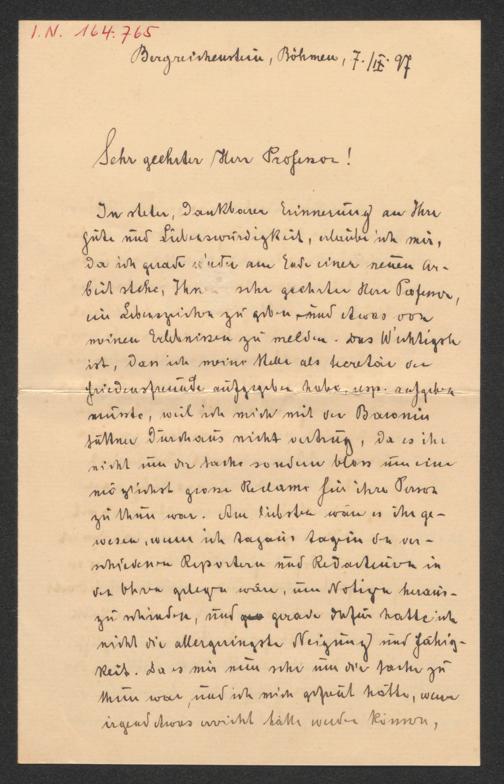 I.N. 164.765
Bergreichenstein, Böhmen, 7./IX. 97
Sehr geehrter Herr Professor!
In steter, dankbarer Erinnerung an Ihre
Güte und Liebenswürdigkeit, erlaube ich mir,
da ich gerade wieder am Ende einer neuen Ar-
beit stehe, Ihnen sehr geehrter Herr Professor,
ein Lebenszeichen zu geben und etwas von
meinen Erlebnissen zu melden. Das Wichtigste
ist, dass ich meine Stelle als Secretär der
Friedensfreunde aufgegeben habe, resp. aufgeben
musste, weil ich mich mit der Baronin
Suttner durchaus nicht vertrug, da es ihr
nicht um die Sache sondern bloss um eine
möglichst grosse Reclame für ihre Person
zu thun war. Am liebsten wäre es ihr ge-
wesen, wenn ich tagaus tagein den ver-
schiedenen Reportern und Redacteuren in
den Ohren gelegen wäre, um Notizen heraus-
zuschinden, und gerade dafür hatte ich
nicht die allergeringste Neigung und Fähig-
keit. Da es mir nun sehr um die Sache zu
thun war, und ich mich gefreut hätte, wenn
irgend etwas erreicht hätte werden können,